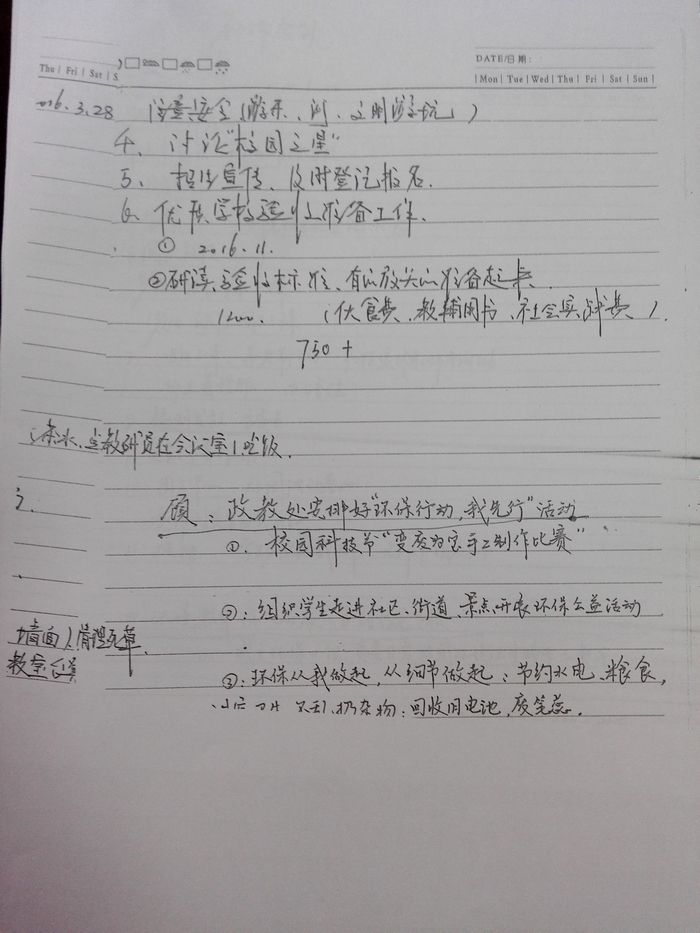 Thu | Fri | Sat | S
DATE/日期:
| Mon | Tue | Wed | Thu | Fri | Sat | Sun |
16.3.28 注意安全(
4、讨论"校园之星"
5、招生宣传、及时登记报名.
6、优质学校验收准备工作.
① 2016.11.
②研读验收标准、有的放矢的准备起来.
1200. (伙食费、教辅用书、社会实践费).
750 +
茶水、 教研员在会议室1吃饭.
顾:政教处安排好"环保行动,我先行"活动
①. 校园科技节"变废为宝手工制作比赛"
②:组织学生走进社区、街道、景点开展环保公益活动
墙面 清理
教室
③:环保从我做起,从细节做起:节约水电、粮食,
不乱扔杂物:回收旧电池,废笔芯.